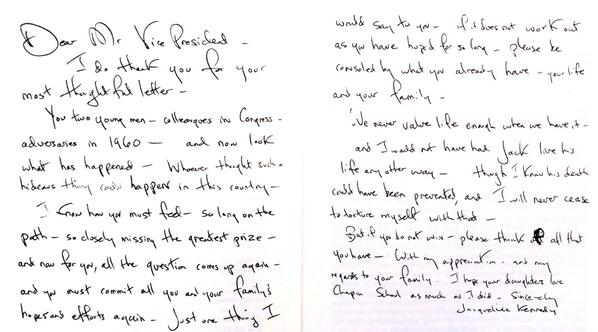 Dear Mr Vice President –
I do thank you for your
most thoughtful letter –
You two young men – colleagues in Congress –
adversaries in 1960 – and now look
what has happened – Whoever thought such a
hideous thing could happen in this country –
I know how you must feel – so long on the
path – so closely missing the greatest prize –
and now for you, all the question comes up again –
and you must commit all you and your family's
hopes and efforts again – Just one thing I
would say to you – if it does not work out
as you have hoped for so long – please be
consoled by what you already have – your life
and your family –
We never value life enough when we have it –
and I would not have had Jack live his
life any other way – though I know his death
could have been prevented, and I will never cease
to torture myself with that –
But if you do not win – please think of all that
you have – With my appreciation – and my
regards to your family. I hope your daughters love
Chapin School as much as I did – Sincerely
Jacqueline Kennedy